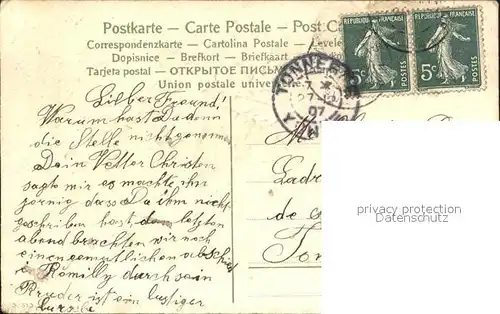 Postkarte – Carte Postale – Post Ca
Correspondenzkarte – Cartolina Postale – Levele
Dopisnice – Brefkort – Briefkaart
Tarjeta postal – ОТКРЫТОЕ ПИСЬМ
Union postale unive
RÉPUBLIQUE FRANÇAISE
5c POSTES
RÉPUBLIQUE FRANÇAISE
5c POSTES
TONNERRE
07
Lieber Freund!
Warum hast Du denn
die Stelle nicht genommen
Dein Vetter Christen
sagte mir es machte ihn
zornig dass Du ihm nicht
geschrieben hast den letzten
abend brachten wir noch
einen gemütlichen abschied
i. Romilly durch sein
Bruder ist ein lustiger
bursche
M
Ladr
de c
Ton
privacy protection
Datenschutz